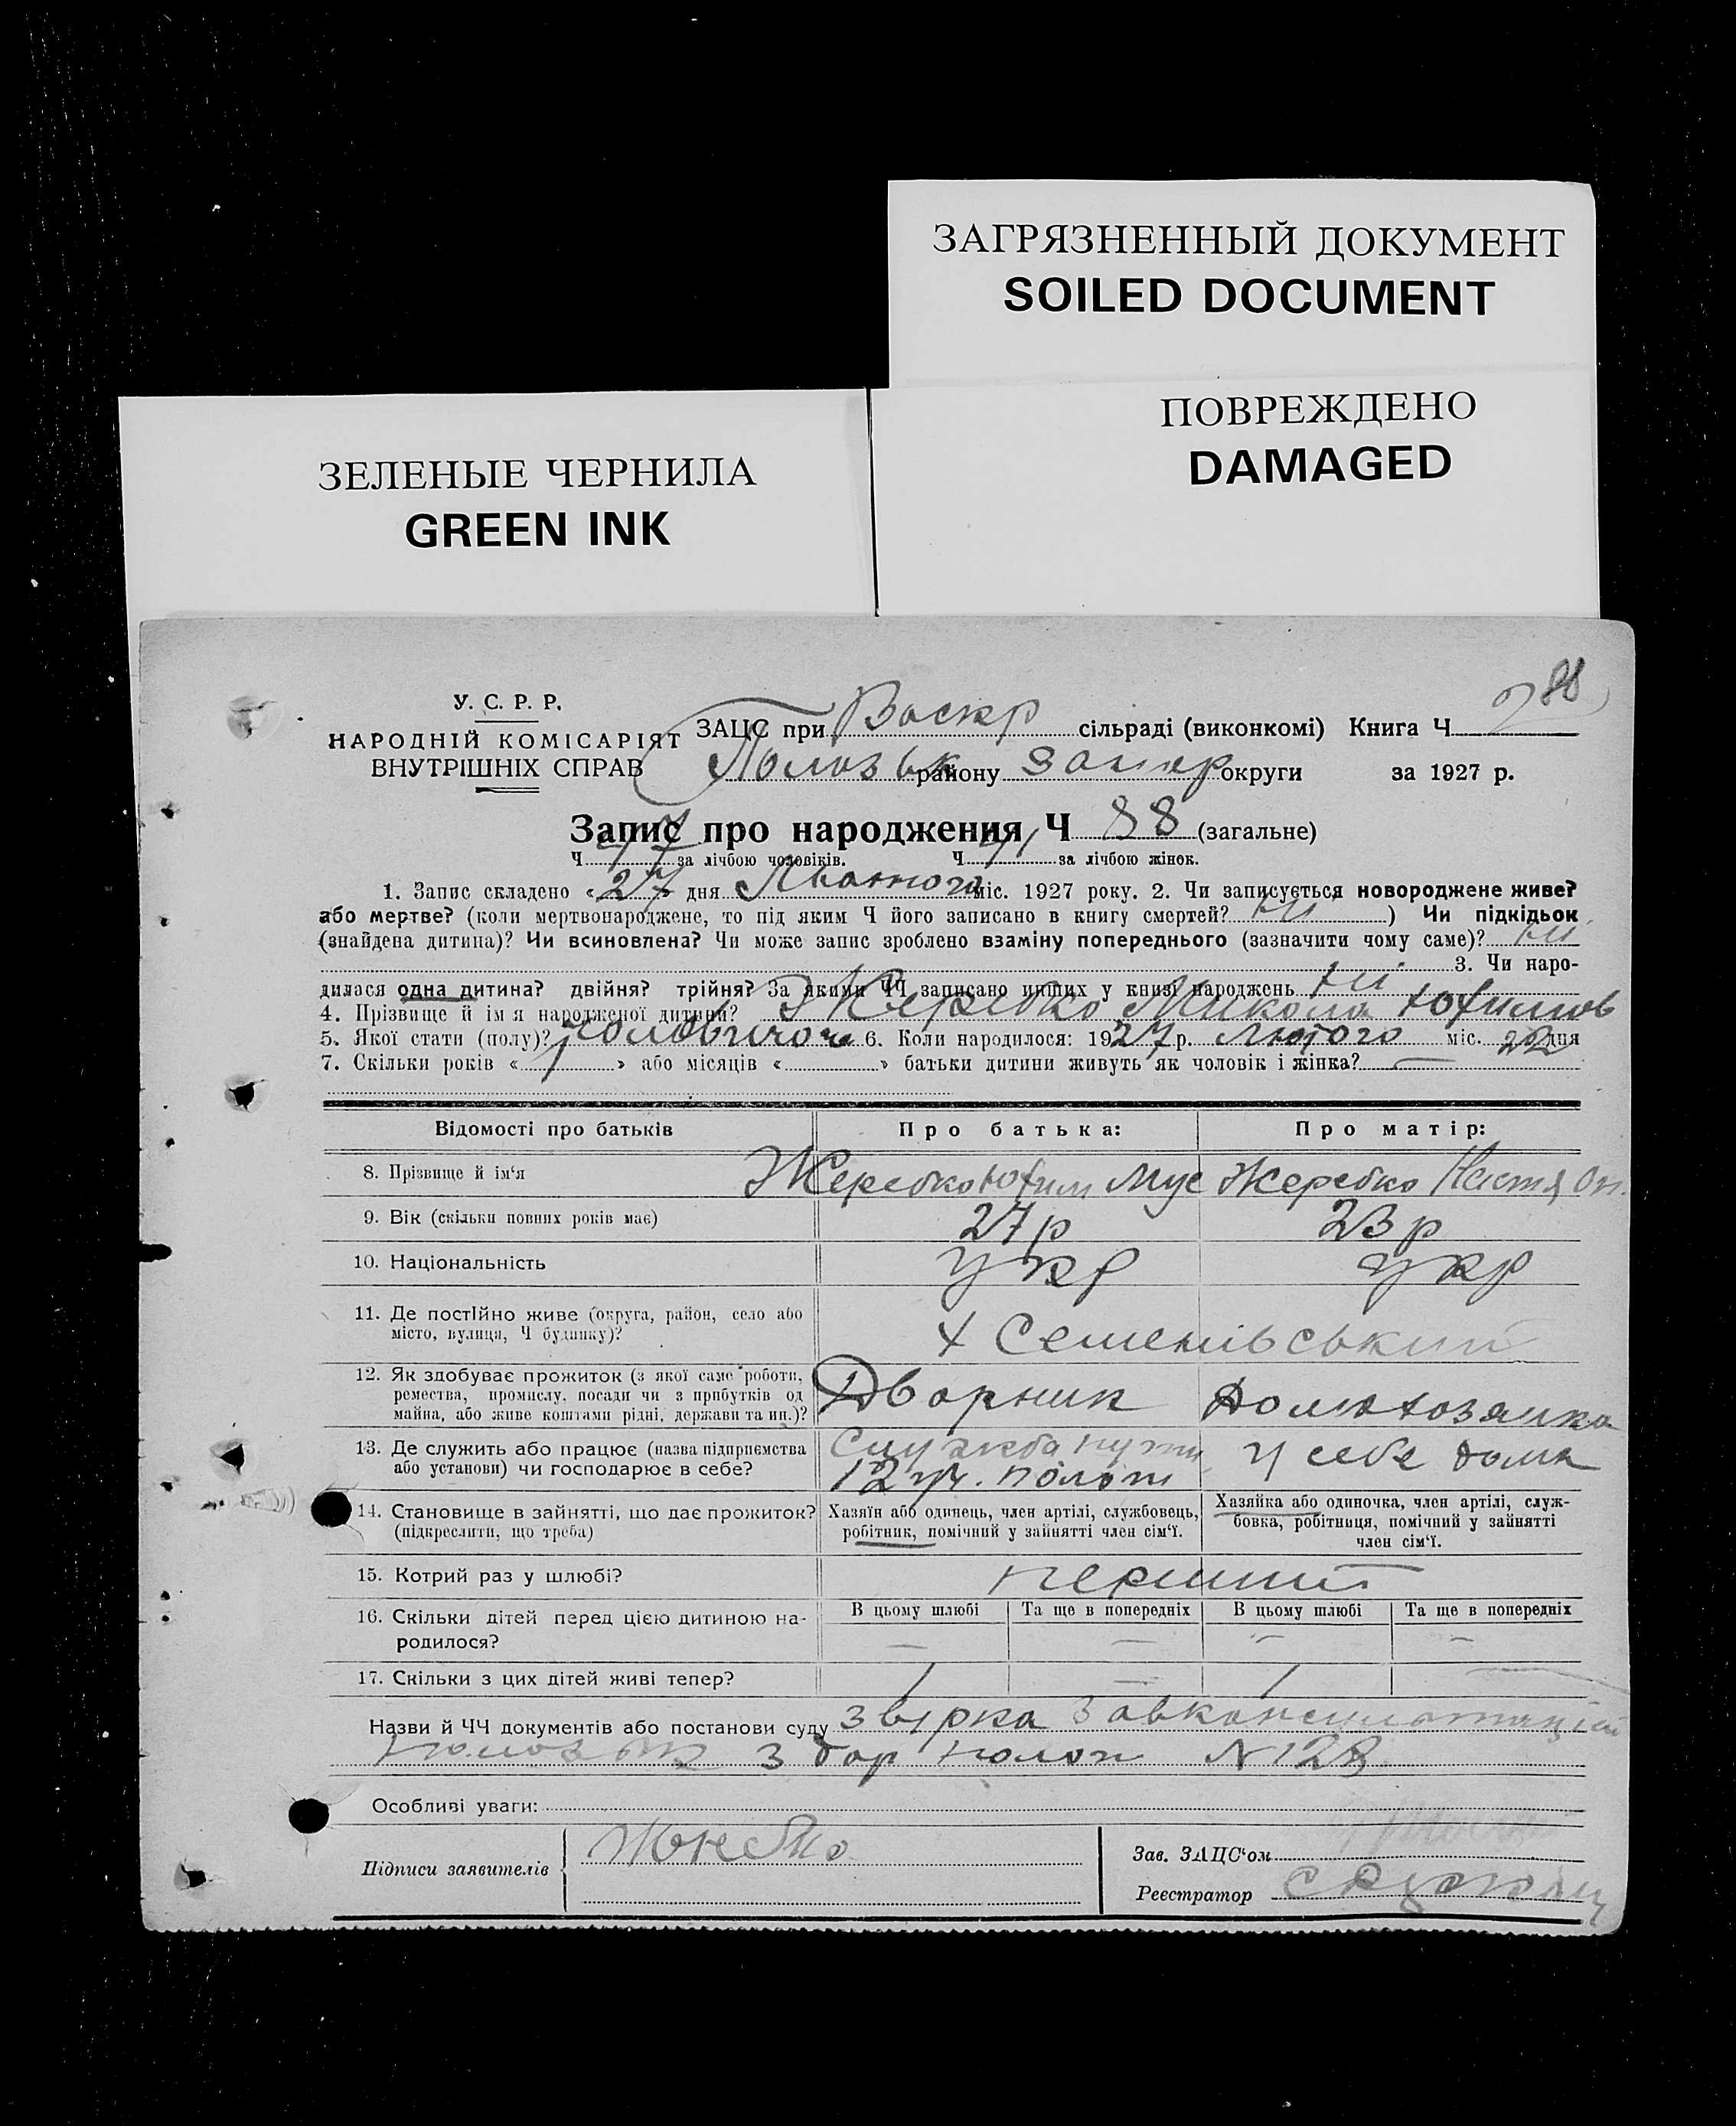 ЗАГРЯЗНЕННЫЙ ДОКУМЕНТ
SOILED DOCUMENT
ПОВРЕЖДЕНО
DAMAGED
ЗЕЛЕНЫЕ ЧЕРНИЛА
GREEN INK
88
У. С. Р. Р.
НАРОДНІЙ КОМІСАРІЯТ
ВНУТРІШНІХ СПРАВ
ЗАЦС при Воскр сільраді (виконкомі) Книга Ч 2
Пологівськ району Запор округи за 1927 р.
Запис про народження Ч 88 (загальне)
Ч 47 за лічбою чоловіків. Ч 41 за лічбою жінок.
1. Запис складено «27» дня Лютого міс. 1927 року. 2. Чи записується новороджене живе?
або мертве? (коли мертвонароджене, то під яким Ч його записано в книгу смертей? ні ) Чи підкідьок
(знайдена дитина)? Чи всиновлена? Чи може запис зроблено взаміну попереднього (зазначити чому саме)? ні
3. Чи наро-
дилася одна дитина? двійня? трійня? За якими ЧЧ записано инших у книзі народжень ні
4. Прізвище й ім'я народженої дитини? Жеребко Микола Юхимов
5. Якої стати (полу)? чоловічої 6. Коли народилося: 1927 р. Лютого міс. 22 дня
7. Скільки років « / » або місяців « » батьки дитини живуть як чоловік і жінка? —
Відомості про батьків Про батька: Про матір:
8. Прізвище й ім'я Жеребко Юхим Мус Жеребко Настя
9. Вік (скільки повних років має) 27 р 23 р
10. Національність укр укр
11. Де постійно живе (округа, район, село або
місто, вулиця, Ч будинку)? х Семенівський
12. Як здобуває прожиток (з якої саме роботи,
ремества, промислу, посади чи з прибутків од
майна, або живе коштами рідні, держави та ин.)? Дворник Домохозяйка
13. Де служить або працює (назва підприємства
або установи) чи господарює в себе? Служба пути 12 уч. полог у себе дома
14. Становище в зайнятті, що дає прожиток?
(підкреслити, що треба)
Хазяїн або одинець, член артілі, службовець,
робітник, помічний у зайнятті член сім'ї.
Хазяйка або одиночка, член артілі, служ-
бовка, робітниця, помічний у зайнятті
член сім'ї.
15. Котрий раз у шлюбі? перший
16. Скільки дітей перед цією дитиною на-
родилося?
В цьому шлюбі Та ще в попередніх В цьому шлюбі Та ще в попередніх
— — — —
17. Скільки з цих дітей живі тепер? / — / —
Назви й ЧЧ документів або постанови суду
з N 128
Особливі уваги:
Підписи заявителів
Зав. ЗАЦС'ом
Реєстратор